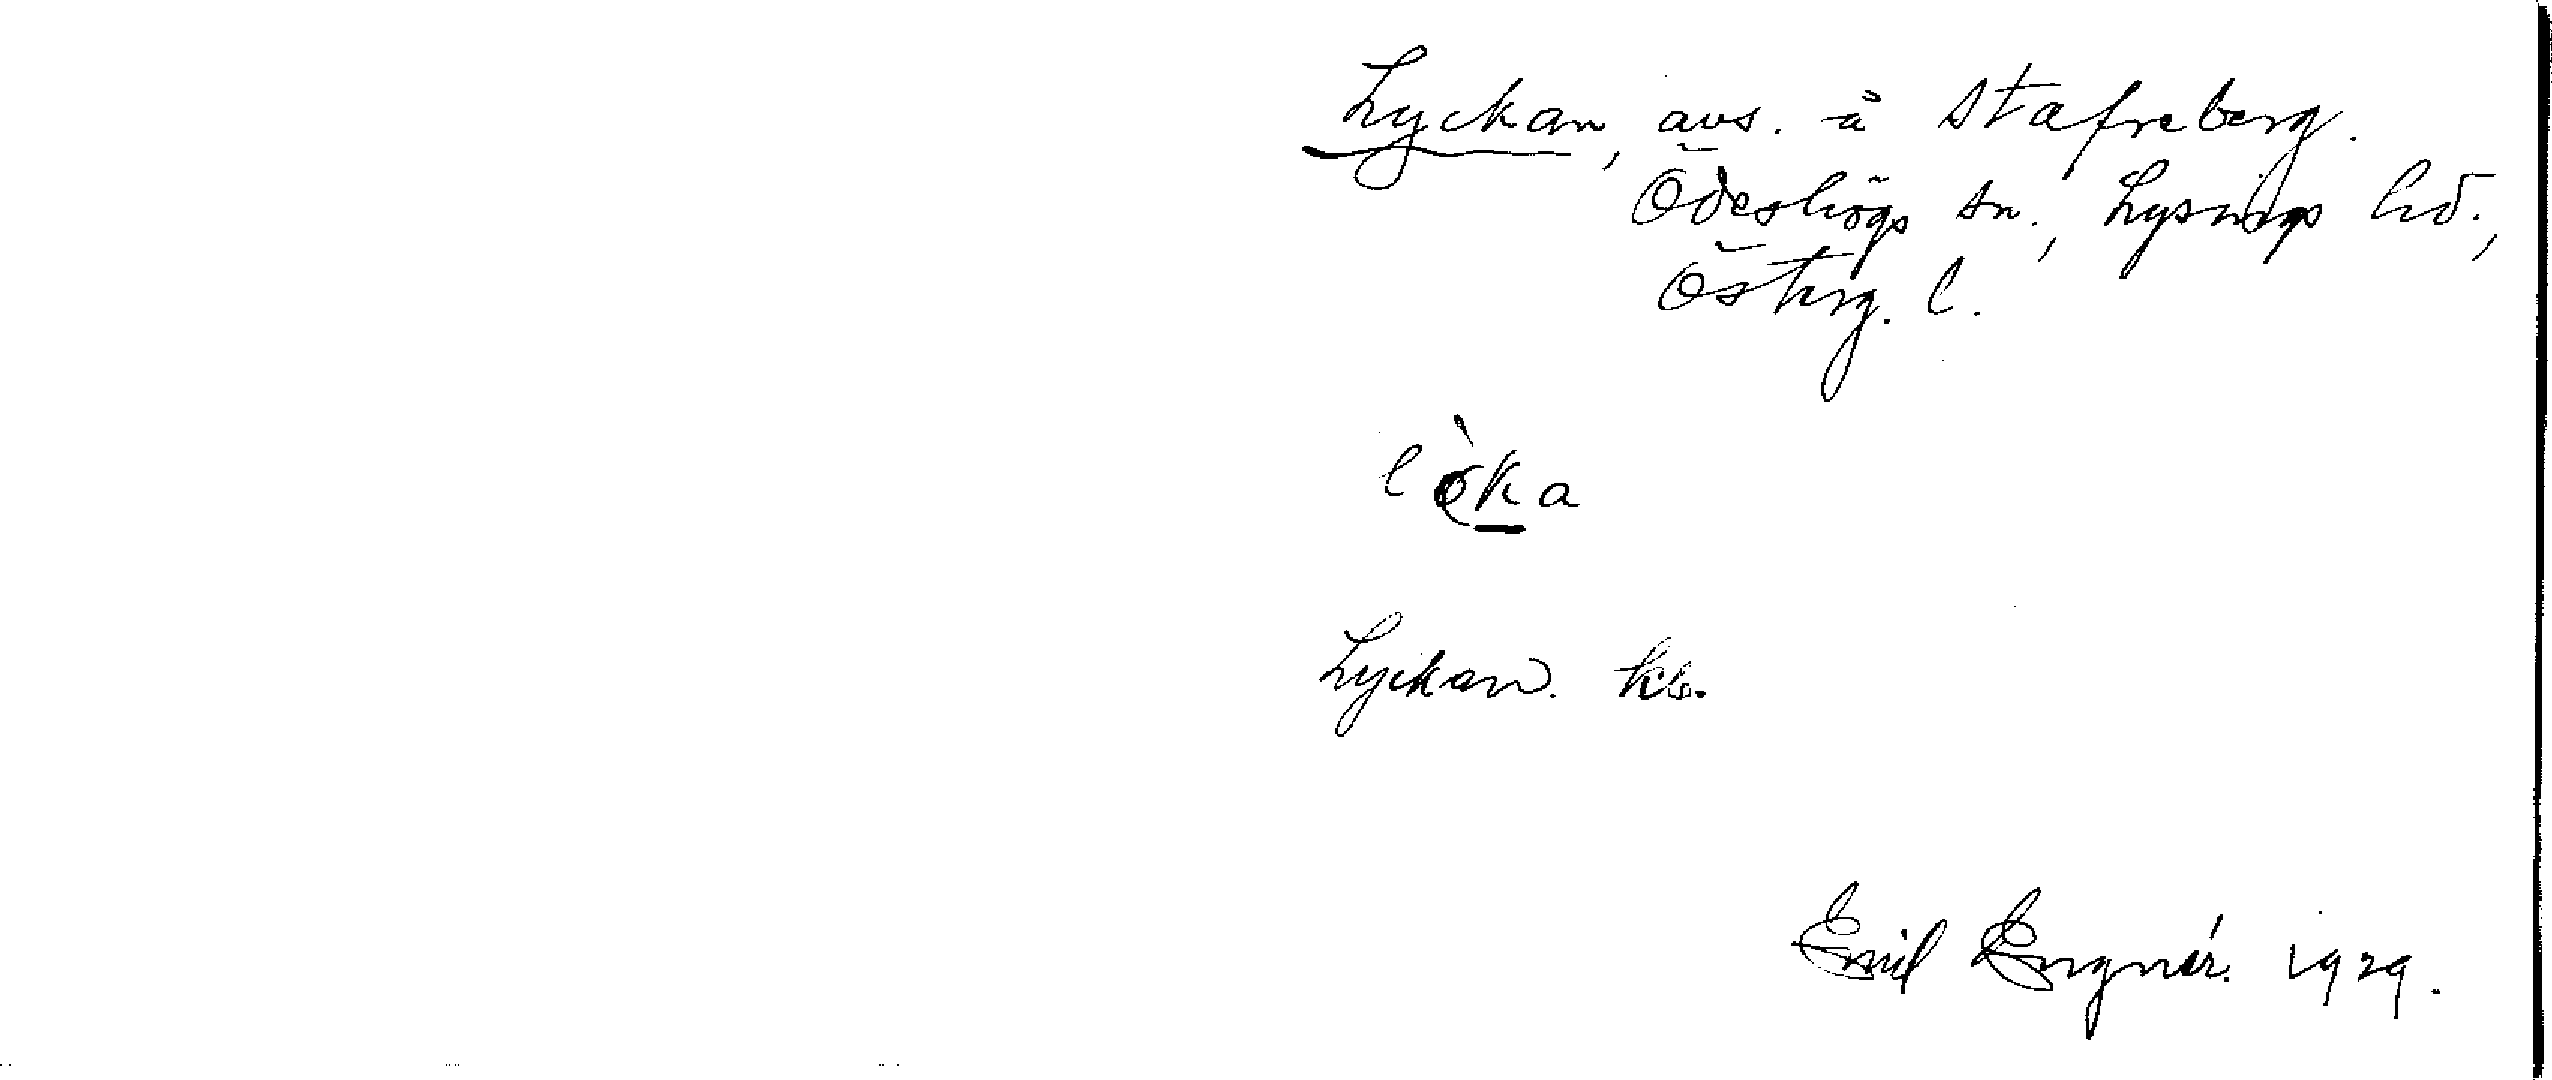 Lyckan, avs. å Stafreberg.
Ödeshögs sn., Lysings hd.,
Österg. l.
lȯ̖ka
Lyckan. kb.
Emil Engnér. 1929.